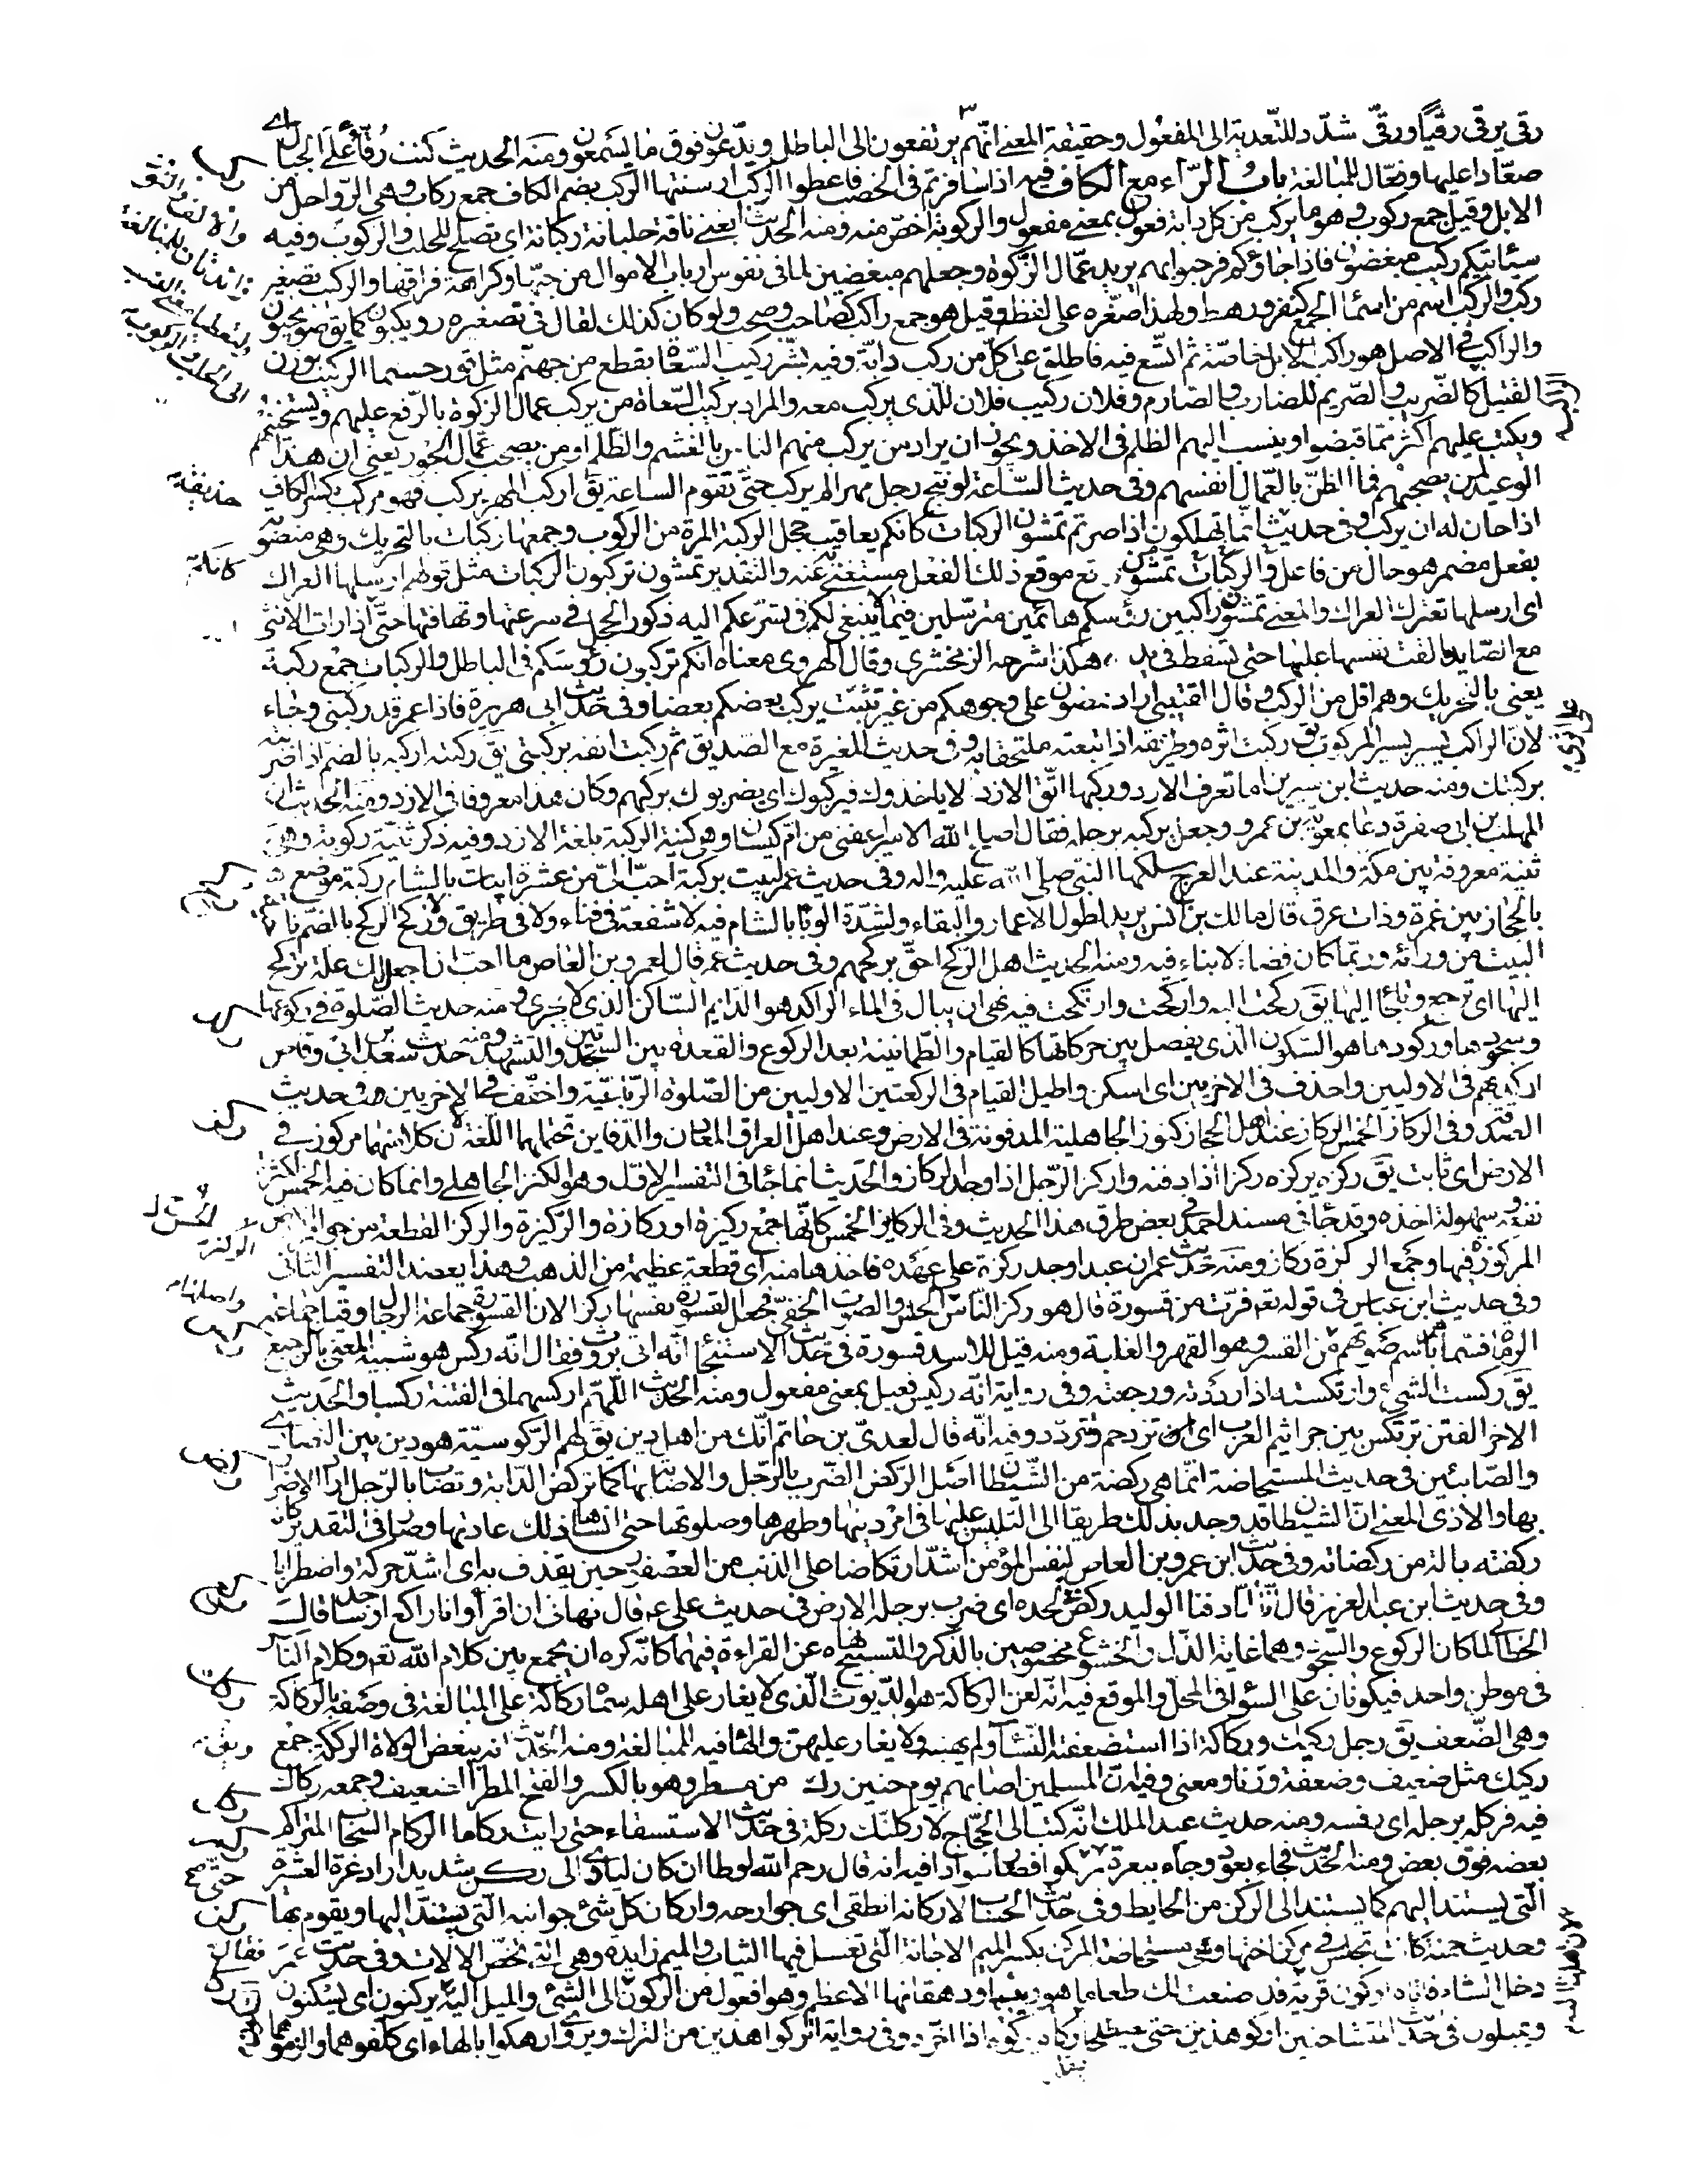 رقى يرقى رقيّا ورقّى شدّد للتّعدية الى المفعول وحقيقة المعنى انّهم يرتفعون الى الباطل ويدّعون فوق ما يسمعون ومنه الحديث كنت رقّاءً على الجبال اى
صعّادا عليها وفعّال للمبالغة باب الرّاء مع الكاف فيه اذا سافرتم فى الخصب فاعطوا الركب اسنتها الركب بضم الكاف جمع ركاب وهى الرّواحل من
الابل وقيل جمع ركوب وهو ما يركب من كل دابة فعول بمعنى مفعول والركوبة اخصّ منه ومنه الحديث ابغنى ناقة حلبانة ركبانة اى تصلح للحلب والركوب وفيه
سيأتيكم ركيب مبغضون فاذا جاؤكم فرحبوا بهم يريد عمّال الزكوة وجعلهم مبغضين لما فى نفوس ارباب الاموال من حبّها وكراهة فراقها والركيب تصغير
ركب والركب اسم من اسماء الجمع كنفر ورهط ولهذا صغّره على لفظه وقيل هو جمع راكب كصاحب وصحب ولو كان كذلك لقال فى تصغيره رويكبون كما يق صويحبون
والراكب فى الاصل هو راكب الابل خاصّة ثم اتّسع فيه فاطلق على كلّ من ركب دابّة وفيه بشّر ركيب السّعاة بقطع من جهنّم مثل قور حسما الركيب بوزن
القتيل كالضّريب والصّريم للضارب والصّارم وفلان ركيب فلان للّذى يركب معه والمراد بركيب السّعاة من يركب عمال الزكوة بالرّفع عليهم ويستخينهم
ويكتب عليهم اكثر ممّا قبضوا وينسب اليهم الظلم فى الاخذ ويجوز ان يراد من يركب منهم الناس بالغشم والظّلم او من يصحب عمّال الجور يعنى ان هذا
الوعيد لمن يصحبهم فما الظنّ بالعمّال انفسهم وفى حديث السّاعة لو نتج رجل مهرا لم يركب حتّى تقوم الساعة يق اركب المهر يركب فهو مركب بكسر الكاف
اذا حان له ان يركب وفى حديث انّما تهلكون اذا صرتم تمشون الركبات كانكم يعاقيب حجل الركبة المرة من الركوب وجمعها ركبات بالتحريك وهى منصوبة
بفعل مضمر هو حال من فاعل تمشون والركبات واقع موقع ذلك الفعل مستغنى به عنه والتقدير تمشون تركبون الركبات مثل قولهم ارسلها العراك
اى ارسلها تعترك العراك والمعنى تمشون راكبين رؤسكم هائمين مترسّلين فيما لا ينبغى لكم فى تسرّعكم اليه ذكور الحجل فى سرعتها وتهافتها حتّى اذا رات الانثى
مع الصّايد القت نفسها عليها حتى تسقط فى يده هكذا شرحه الزمخشرى وقال الهروى معناه انكم تركبون رؤوسكم فى الباطل والركبات جمع ركبة
يعنى بالتحريك وهم اقل من الركب وقال القتيبى اراد تمضون على وجوهكم من غير تثبّت يركب بعضكم بعضا وفى حديث ابى هريرة فاذا عمر قد ركبنى وجاء
لانّ الراكب يسير بسير المركوب يق ركبت اثره وطريقه اذا تبعته ملتحقا به وفى حديث المغيرة مع الصّديق ثم ركبت انفه بركبتى يق ركبته اركبه بالضم اذا ضربته
بركبتك ومنه حديث ابن سيرين اما تعرف الازد وركبها اتّق الازد لا ياخذوك فيركبوك اى يضربوك بركبهم وكان هذا معروفا فى الازد ومنه الحديث ان
المهلب بن ابى صفرة دعا بمعوية بن عمرو وجعل يركبه برجله فقال اصلح الله الامير اعفنى من امّ كيسان وهى كنية الركبة بلغة الازد وفيه ذكر ثنيّة ركوبة وهى
ثنية معروفة بين مكّة والمدينة عند العرج سلكها النّبى صلى الله عليه واله وفى حديث عمر لبيت بركبة احبّ الىّ من عشرة ابيات بالشام ركبة موضع
بالحجاز بين غمرة وذات عرق قال مالك بن انس يريد لطول الاعمار والبقاء ولشدّة الوباء بالشام فيه لا شفعة فى فناء ولا فى طريق ولا ركح الركح بالضّم ناحية
البيت من ورائه وربّما كان فضاء لا بناء فيه ومنه الحديث اهل الرّكح احقّ بركحهم وفى حديث عمر قال لعمرو بن العاص ما احبّ ان اجعل لك علّة تركح
اليها اى ترجع وتلجأ اليها يق ركحت اليه واركحت وارتكحت فيه نهى ان يبال فى الماء الراكد هو الدّايم السّاكن الذى لا يجرى ومنه حديث الصّلوة فى ركوعها
وسجودها وركودها هو السّكون الذى يفصل بين حركاتها كالقيام والطّمانينة بعد الركوع والقعدة بين السّجدتين والتّشهد ومنه حديث سعد بن ابى وقاص
اركد بهم فى الاوليين واحذف فى الاخريين اى اسكن واطيل القيام فى الركعتين الاوليين من الصّلوة الرّباعيّة واخفّف فى الاخريين فى حديث
الصّدقة وفى الركاز الخمس الركاز عند اهل الحجاز كنوز الجاهلية المدفونة فى الارض وعند اهل العراق المعادن والدّفاين تحتملهما اللّغة لان كلا منهما مركوز فى
الارض اى ثابت يق ركزه يركزه ركزا اذا دفنه واركز الرّجل اذا وجد الركاز والحديث انما جاء فى التفسير الاوّل وهو الكنز الجاهلى وانما كان فيه الخمس لكثرة
نفعه وسهولة اخذه وقد جاء فى مسند احمد فى بعض طرق هذا الحديث وفى الركايز الخمس كانّها جمع ركيزة او ركازة والرّكيزة والركز القطعة من جواهر الارض
المركوزة فيها وجمع الركزة ركاز ومنه حديث عمر ان عبدا وجد ركزة على عهده فاخذها منه اى قطعة عظيمة من الذهب وهذا يعضد التفسير الثانى
وفى حديث ابن عباس فى قوله تع فرّت من قسورة قال هو ركز النّاس الحسّ والصوت الخفىّ فجعل القسورة نفسها ركزا لان القسورة جماعة الرجال وقيل جماعة
الرماة فسمّاهم باسم صوتهم من القسر وهو القهر والغلبة ومنه قيل للاسد قسورة فى حديث الاستنجاء انّه اتى بروث فقال انّه ركس هو شبيه المعنى بالرجيع
يق ركست الشىء واركسته اذا رددته ورجعته وفى رواية انّه ركيس فعيل بمعنى مفعول ومنه الحديث اللّهمّ اركسهما فى الفتنة ركسا والحديث
الاخر الفتن ترتكس بين جراثيم العرب اى تزدحم وتتردّد وفيه انّه قال لعدىّ بن حاتم انّك من اهل دين يق لهم الرّكوسيّة هو دين بين النّصارى
والصّابئين فى حديث المستحاضة انّما هى ركضة من الشّيطان اصل الرّكض الضّرب بالرّجل والاصابة بها كما تركض الدّابة وتصاب بالرّجل اراد الاضرار
بها والاذى المعنى انّ الشيطان قد وجد بذلك طريقا الى التلبيس عليها فى امر دينها وطهرها وصلوتها حتى انساها ذلك عادتها وصار فى التقدير كانه
ركضته بالة من ركضاته وفى حديث ابن عمرو بن العاص لنفس المؤمن اشدّ ارتكاضا على الذنب من العصفور حين يغدف به اى اشدّ حركة واضطرابا
وفى حديث ابن عبد العزيز قال انّا لمّا دفنّا الوليد ركض فى لحده اى ضرب برجله الارض فى حديث على ع قال نهانى ان اقرأ وانا راكع او ساجد قال
الخطابى لما كان الركوع والسّجود وهما غاية الذّل والخشوع مخصوصين بالذّكر والتسبيح نهاه عن القراءة فيهما كانّه كره ان يجمع بين كلام الله تع وكلام النّاس
فى موطن واحد فيكونان على السّواء فى المحلّ والموقع فيه انّه لعن الركاكة هو الدّيوث الّذى لا يغار على اهله سمّاه ركاكة على المبالغة فى وصفه بالرّكاكة
وهى الضّعف يق رجل ركيك وركاكة اذا استضعفته النّساء ولم يهبنه ولا يغار عليهنّ والهاء فيه للمبالغة ومنه الحديث انّه يبغض الولاة الركّكة جمع
ركيك مثل ضعيف وضعفة وزنا ومعنى وفيه انّ المسلمين اصابهم يوم حنين ركّ من مطر وهو بالكسر والفتح المطر الضعيف وجمعه ركاك
فيه فركله برجله اى رفسه ومنه حديث عبد الملك انّه كتب الى الحجّاج لاركلنّك ركلة فى حديث الاستسقاء حتى رايت ركاما الركام السّحاب المتراكم
بعضه فوق بعض ومنه الحديث فجاء بعود وجاء ببعرة حتّى ركموا فصار سوادا فيه انه قال رحم الله لوطا ان كان لياوى الى ركن شديد اراد عزة العشيرة
الّتى يستند اليهم كما يستند الى الركن من الحايط وفى حديث الحساب ويقال لاركانه انطقى اى جوارحه واركان كل شىء جوانبه الّتى يستند اليها ويقوم بها
وحديث حمنة كانت تجلس فى مركن اختها وهى مستحاضة المركن بكسر الميم الاجانة الّتى تغسل فيها الثياب والميم زايدة وهى الّتى تخصّ الالات وفى حديث عمر
دخل الشام فاتاه اركون قرية قد صنعت لك طعاما هو رئيسها ودهقانها الاعظم وهو افعول من الركون الى الشىء والميل اليه يركنون اى يسكنون
ويميلون فى حديث المتشاحنين اركوا هذين حتى يصطلحا ركاه يركوه اذا اخّره وفى رواية اتركوا هذين من الترك ويروى ارهكوا بالهاء اى كلّفوهما والزموهما
حذيفة